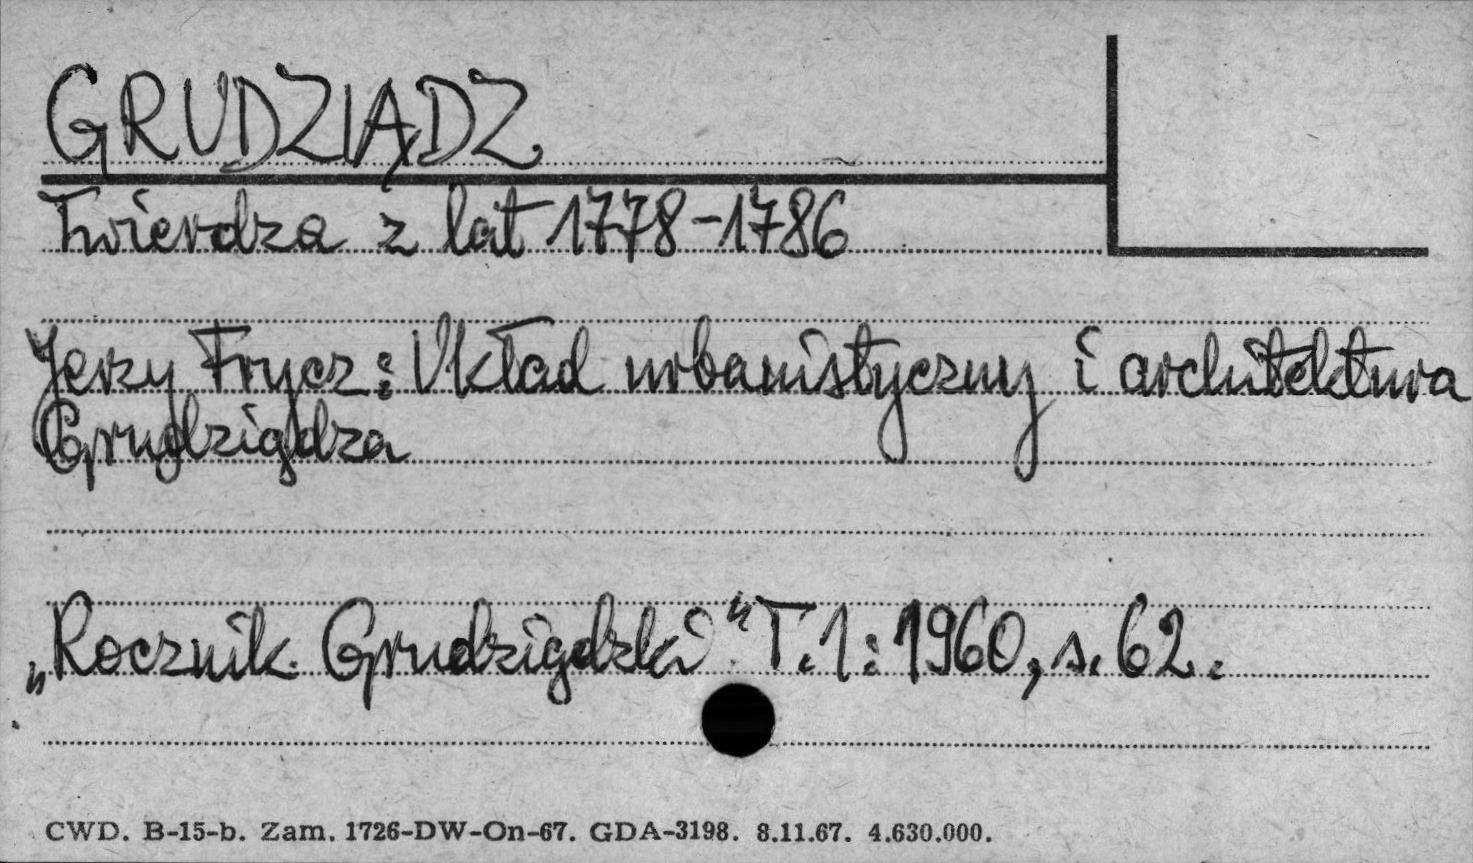 GRUDZIĄDZ
Twierdza z lat 1778-1786
Jerzy Frycz: Układ urbanistyczny i architektura
Grudziądza
„Rocznik Grudziądzki" T.1: 1960, s. 62.
CWD. B-15-b. Zam. 1726-DW-On-67. GDA-3198. 8.11.67. 4.630.000.